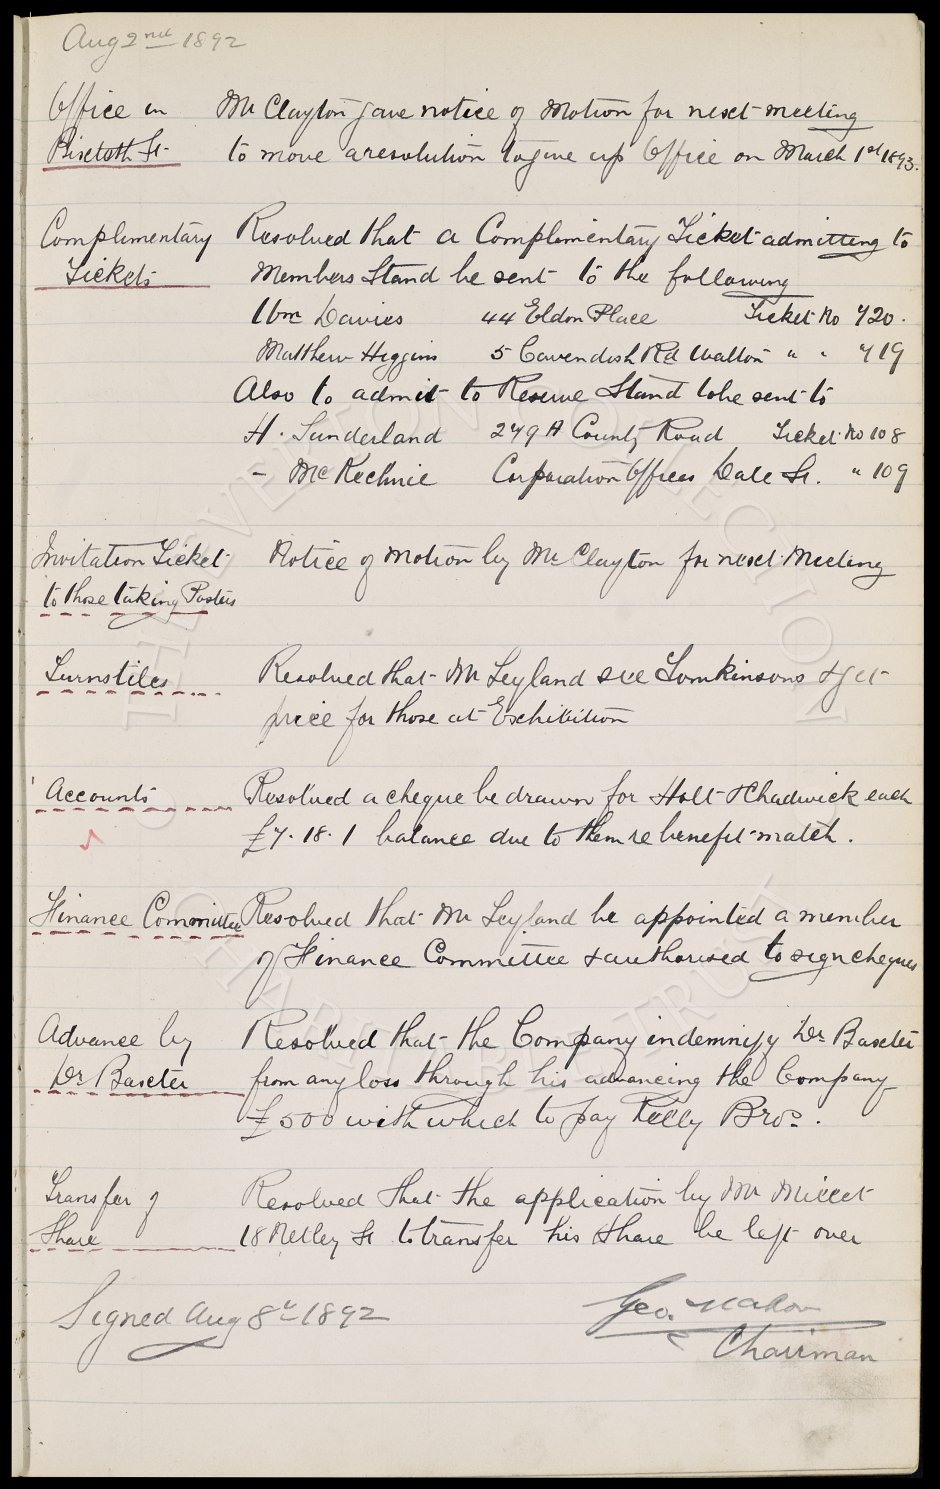 Aug 2nd 1892
Office in Mr Clayton gave notice of Motion for next meeting
Bixteth St. to move a resolution to give up Office on March 1st 1893.
Complimentary Resolved that a Complimentary Ticket admitting to
Tickets Members Stand be sent to the following
Wm Davies 44 Eldon Place Ticket No 720.
Matthew Higgins 5 Cavendish Rd Walton " " 719
Also to admit to Reserve Stand to be sent to
H. Sunderland 279A County Road Ticket No 108
- McKechnie Corporation Offices Dale St. " 109
Invitation Ticket Notice of Motion by Mr Clayton for next Meeting
to those taking Posters
Turnstiles Resolved that Mr Leyland see Tomkinsons & get
price for those at Exhibition
Accounts Resolved a cheque be drawn for Holt & Chadwick each
£7.18.1 balance due to them re benefit match.
Finance Committee Resolved that Mr Leyland be appointed a member
of Finance Committee & authorised to sign cheques
Advance by Resolved that the Company indemnify Dr Baxter
Dr Baxter from any loss through his advancing the Company
£500 with which to pay Kelly Bros.
Transfer of Resolved that the application by Mr Millet
Share 18 Netley St to transfer his Share be left over
Signed Aug 8th 1892 Geo. Mahon
Chairman
THE EVERTON COLLECTION
CHARITABLE TRUST